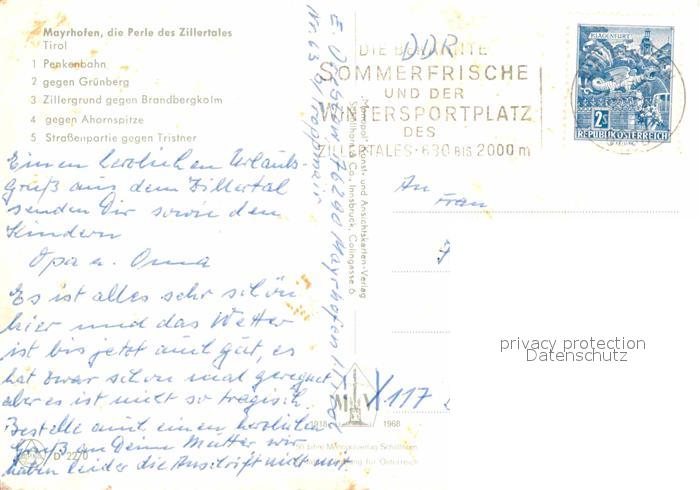 Mayrhofen, die Perle des Zillertales
Tirol
1 Penkenbahn
2 gegen Grünberg
3 Zillergrund gegen Brandbergkolm
4 gegen Ahornspitze
5 Straßenpartie gegen Tristner
Einen herzlichen Urlaubs-
gruß aus dem Zillertal
senden Dir sowie den
Kindern
Opa u. Oma
Es ist alles sehr schön
hier und das Wetter
ist bis jetzt auch gut, es
hat zwar schon mal geregnet
aber es ist nicht so tragisch.
Bestelle auch einen herzlichen
Gruß an Deine Mutter wir
haben leider die Anschrift nicht mit.
D 22/0
6290 Mayrhofen
Metropol Kunst- und Ansichtskarten-Verlag
& Co., Innsbruck, Colingasse 6
1918
1968
DDR
DIE BEKANNTE
SOMMERFRISCHE
UND DER
WINTERSPORTPLATZ
DES
ZILLERTALES · 630 BIS 2000 m
KLAGENFURT
2S
REPUBLIK ÖSTERREICH
An
Frau
X 117
privacy protection
Datenschutz